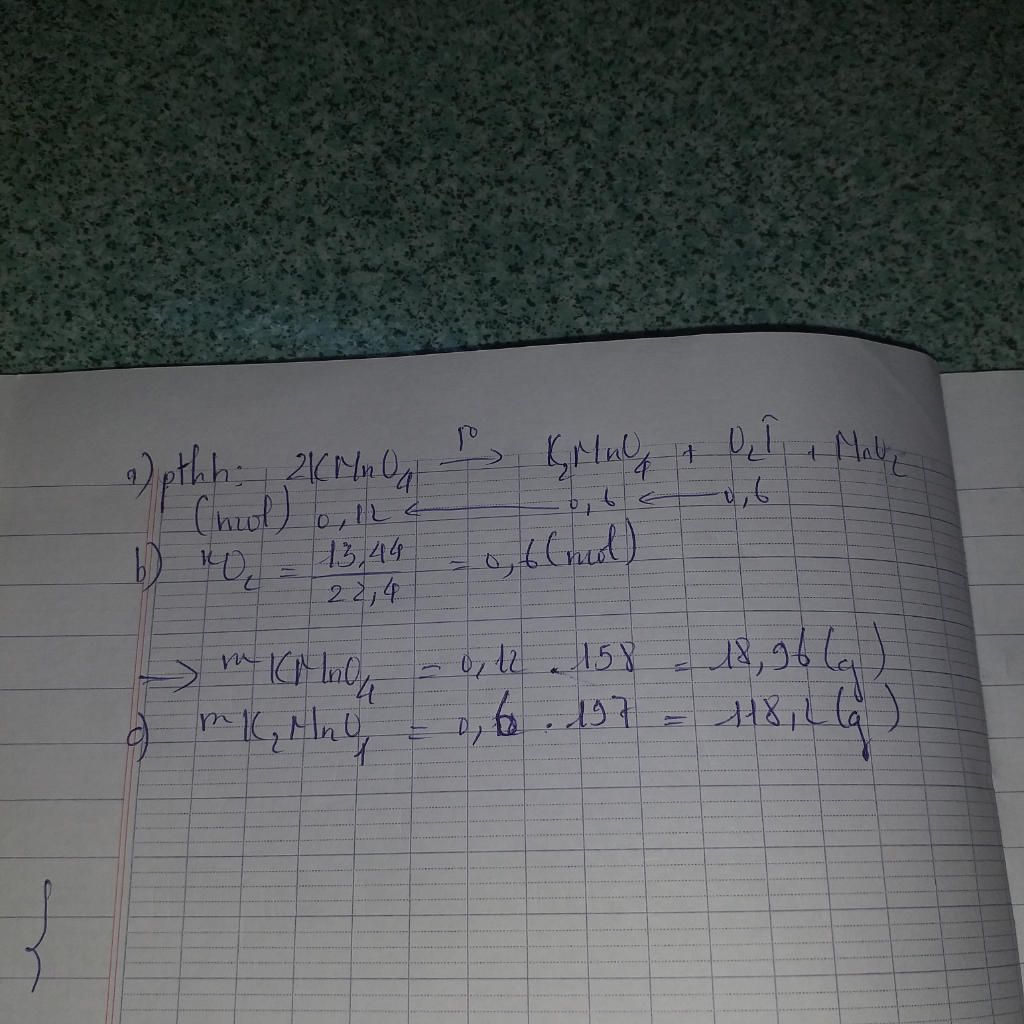 a) pthh: 2KMnO4 t° → K2MnO4 + O2↑ + MnO2
(mol) 0,12 ← 0,6 ← 0,6
b) nO2 = 13,44 / 22,4 = 0,6 (mol)
→ mKMnO4 = 0,12 . 158 = 18,96 (g)
c) mK2MnO4 = 0,6 . 197 = 118,2 (g)